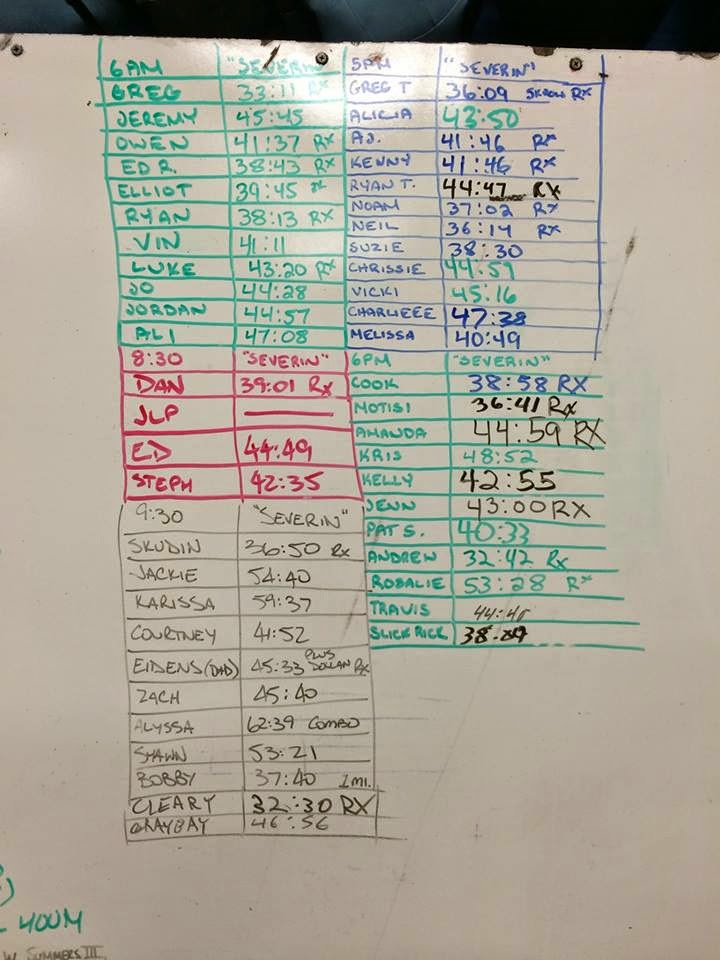 6AM "SEVERIN"
GREG 33:11 RX
JEREMY 45:45
OWEN 41:37 RX
ED R. 38:43 RX
ELLIOT 39:45
RYAN 38:13 RX
VIN 41:11
LUKE 43:20 RX
JO 44:28
JORDAN 44:57
ALI 47:08
8:30 "SEVERIN"
DAN 39:01 Rx
JLP
ED 44:49
STEPH 42:35
9:30 "SEVERIN"
SKUDIN 36:50 Rx
JACKIE 54:40
KARISSA 59:37
COURTNEY 41:52
EIDENS (DAD) 45:33 PLUS DOLLAR Rx
ZACH 45:40
ALYSSA 62:39 COMBO
SHAWN 53:21
BOBBY 37:40 1 MI.
CLEARY 32:30 RX
GRAYBAY 46:56
5PM "SEVERIN"
GREG T 36:09 RX
ALICIA 43:50
AJ. 41:46 RX
KENNY 41:46 RX
RYAN T. 44:47 RX
NOAM 37:02 RX
NEIL 36:14 RX
SUZIE 38:30
CHRISSIE 44:59
VICKI 45:16
CHARLIEEE 47:38
MELISSA 40:49
6PM "SEVERIN"
COOK 38:58 RX
MOTISI 36:41 Rx
AMANDA 44:59 RX
KRIS 48:52
KELLY 42:55
JENN 43:00 RX
PAT S. 40:33
ANDREW 32:42 Rx
ROSALIE 53:28 RX
TRAVIS
SLICK RICK
400M
W. SUMMERS III